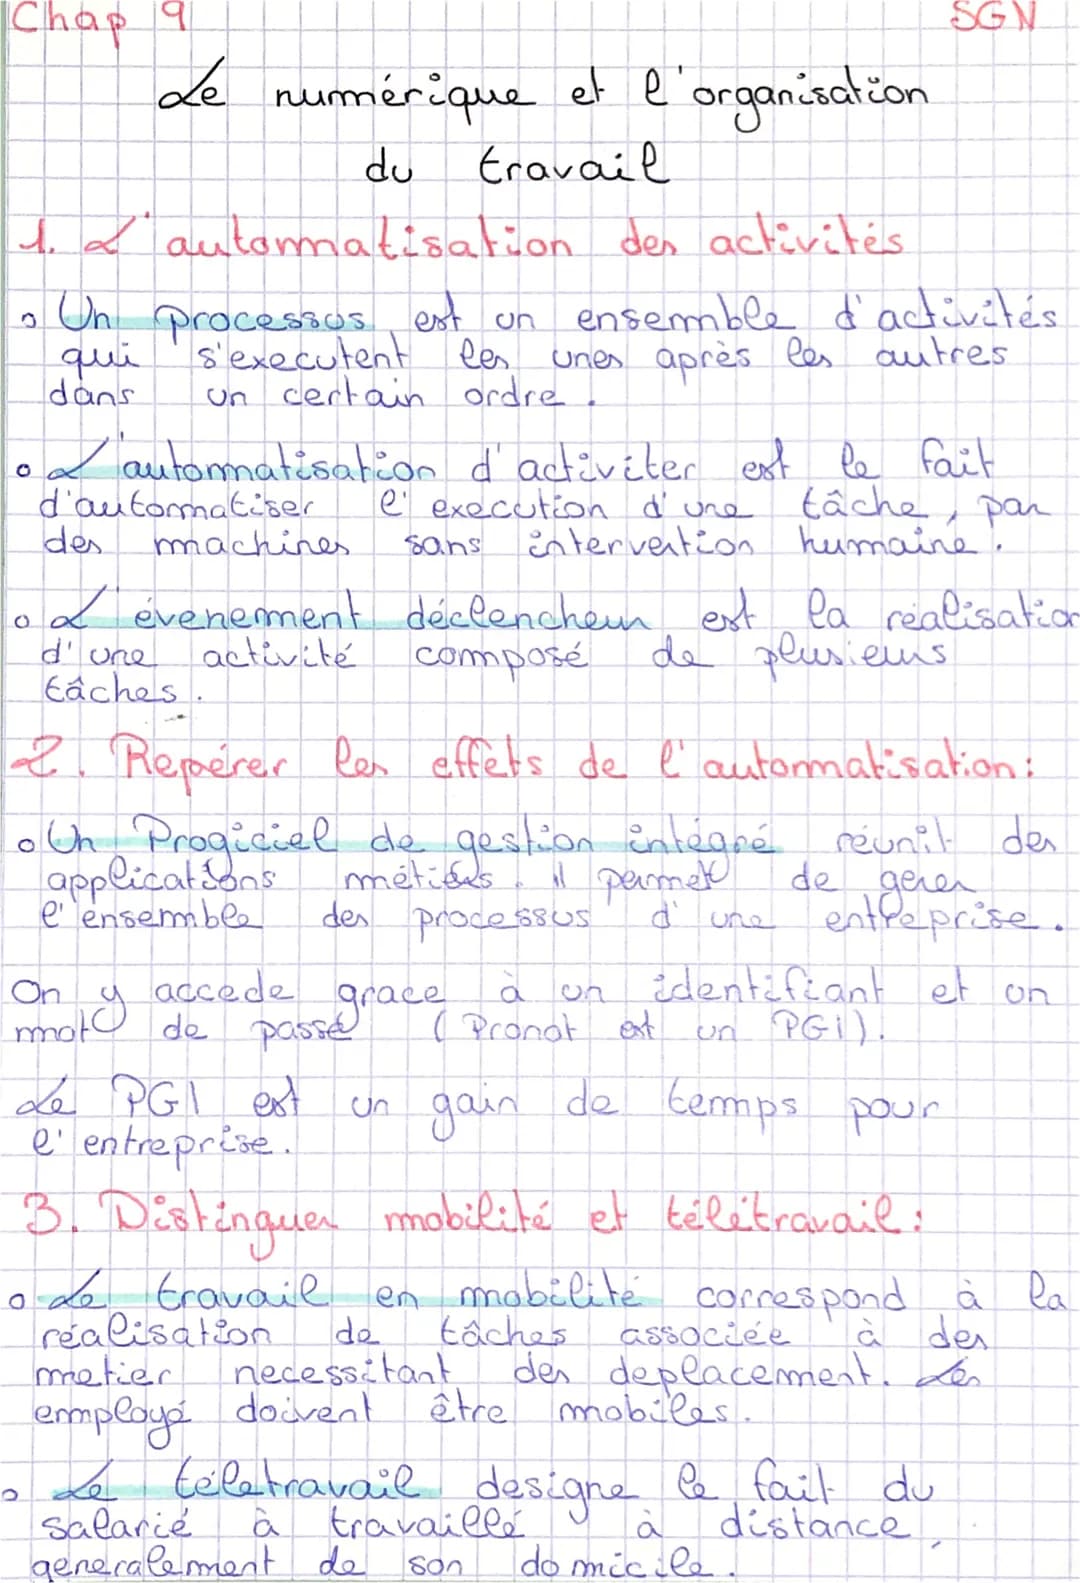 Chap 9
SGN
Le numérique et l'organisation
du travail
1. L'automatisation des activités
Un processus est un ensemble d'activités
qui s'executent les unes après les autres
dans un certain ordre.
L'automatisation d'activiter est le fait
d'automatiser l'execution d'une tâche, par
des machines sans intervention humaine.
L'évenement déclencheur est la réalisation
d'une activité composé de plusieurs
tâches.
2. Repérer les effets de l'automatisation:
Un Progiciel de gestion intégré réunit des
applications métiers. il permet de gérer
l'ensemble des processus d'une entreprise.
On y accede grace à un identifiant et un
mot de passe (Pronot est un PGI).
Le PGI est un gain de temps pour
l'entreprise.
3. Distinguer mobilité et télétravail:
Le travail en mobilité correspond à la
réalisation de tâches associée à des
metier necessitant des deplacement. Les
employé doivent être mobiles.
Le télétravail designe le fait du
salarié à travaillé à distance,
generalement de son domicile.